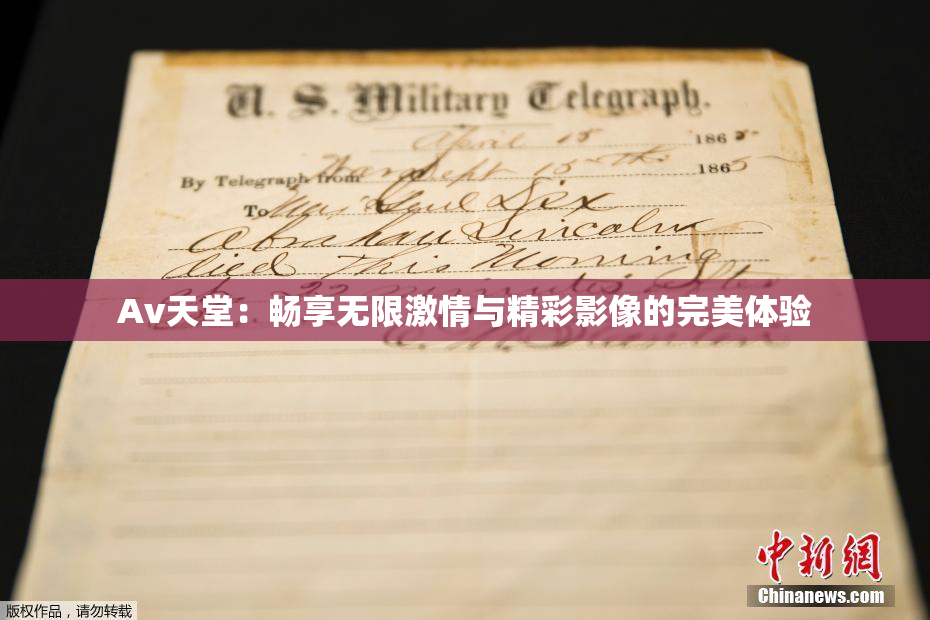 U. S. Military Telegraph.
April 15 1865
By Telegraph from War Dept 15th 1865
To Maj Genl Dix
Abraham Lincoln
died This Morning
at 22 minutes after
Av天堂：畅享无限激情与精彩影像的完美体验
E. M. Stanton
中新网
Chinanews.com
版权作品，请勿转载